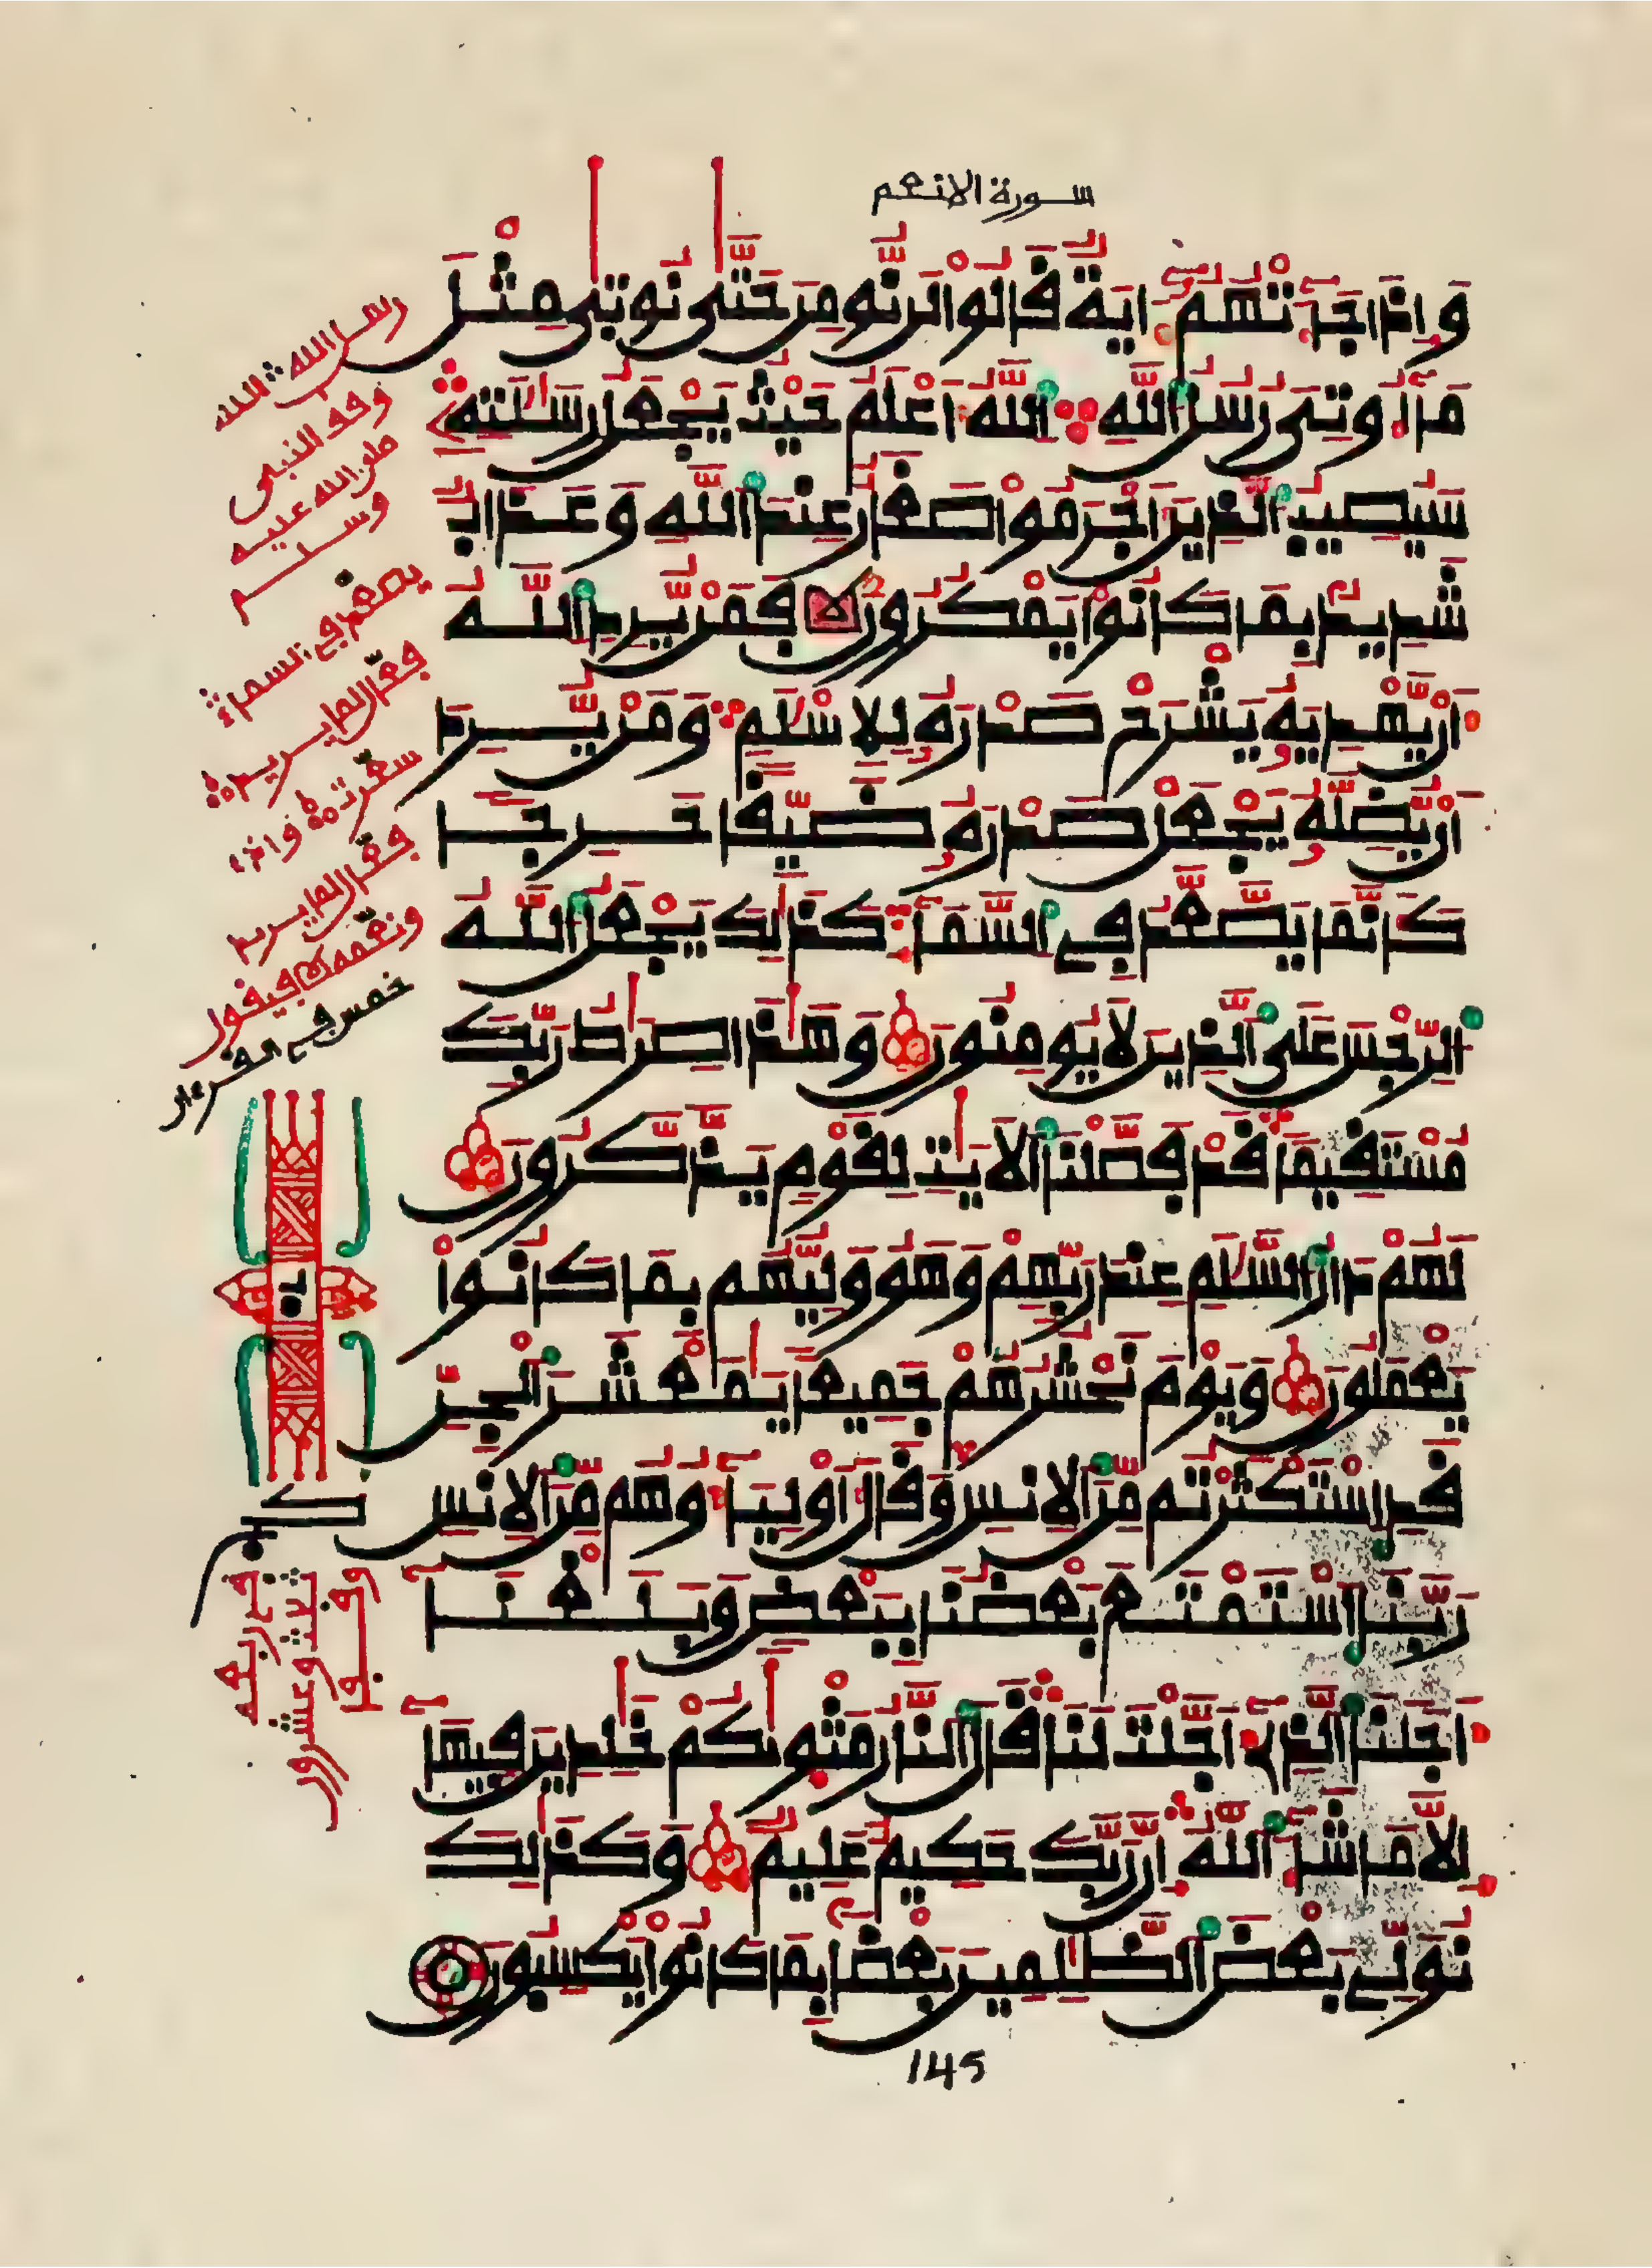 سورة الانعم
وَإِذَا جَآءَتْهُمُۥٓ ءَايَةٌ قَالُوا۟ لَن نُّومِنَ حَتَّىٰ نُوتَىٰ مِثْلَ
مَآ أُوتِيَ رُسُلُ اللَّهِ اللَّهُ أَعْلَمُ حَيْثُ يَجْعَلُ رِسَٰلَٰتِهِۦ
سَيُصِيبُ الَّذِينَ أَجْرَمُوا۟ صَغَارٌ عِندَ اللَّهِ وَعَذَابٌ
شَدِيدٌۢ بِمَا كَانُوا۟ يَمْكُرُونَ فَمَنْ يُّرِدِ اللَّهُ
أَنْ يَّهْدِيَهُۥ يَشْرَحْ صَدْرَهُۥ لِلْإِسْلَٰمِ وَمَنْ يُّرِدَ
أَنْ يُّضِلَّهُۥ يَجْعَلْ صَدْرَهُۥ ضَيِّقًا حَرِجًا
كَأَنَّمَا يَصَّعَّدُ فِي السَّمَآءِ كَذَٰلِكَ يَجْعَلُ اللَّهُ
الرِّجْسَ عَلَى الَّذِينَ لَا يُومِنُونَ وَهَٰذَا صِرَٰطُ رَبِّكَ
مُسْتَقِيمًا قَدْ فَصَّلْنَا الْأَيَٰتِ لِقَوْمٍ يَذَّكَّرُونَ
لَهُمْ دَارُ السَّلَٰمِ عِندَ رَبِّهِمْ وَهُوَ وَلِيُّهُم بِمَا كَانُوا۟
يَعْمَلُونَ وَيَوْمَ نَحْشُرُهُمْ جَمِيعًا يَٰمَعْشَرَ الْجِنِّ
قَدِ اسْتَكْثَرْتُم مِّنَ الْإِنسِ وَقَالَ أَوْلِيَآؤُهُم مِّنَ الْإِنسِ
رَبَّنَا اسْتَمْتَعَ بَعْضُنَا بِبَعْضٍ وَبَلَغْنَآ
أَجَلَنَا الَّذِيٓ أَجَّلْتَ لَنَا قَالَ النَّارُ مَثْوَىٰكُمْ خَٰلِدِينَ فِيهَآ
إِلَّا مَا شَآءَ اللَّهُ إِنَّ رَبَّكَ حَكِيمٌ عَلِيمٌ وَكَذَٰلِكَ
نُوَلِّي بَعْضَ الظَّٰلِمِينَ بَعْضًۢا بِمَا كَانُوا۟ يَكْسِبُونَ
145
رسل الله الله
وقف النبي
صلى الله عليه
وسلم
يصعد في السماء
فعّال لما يريد
فعّال لما يريد
خمس في القرءان
ثلاث وعشرون